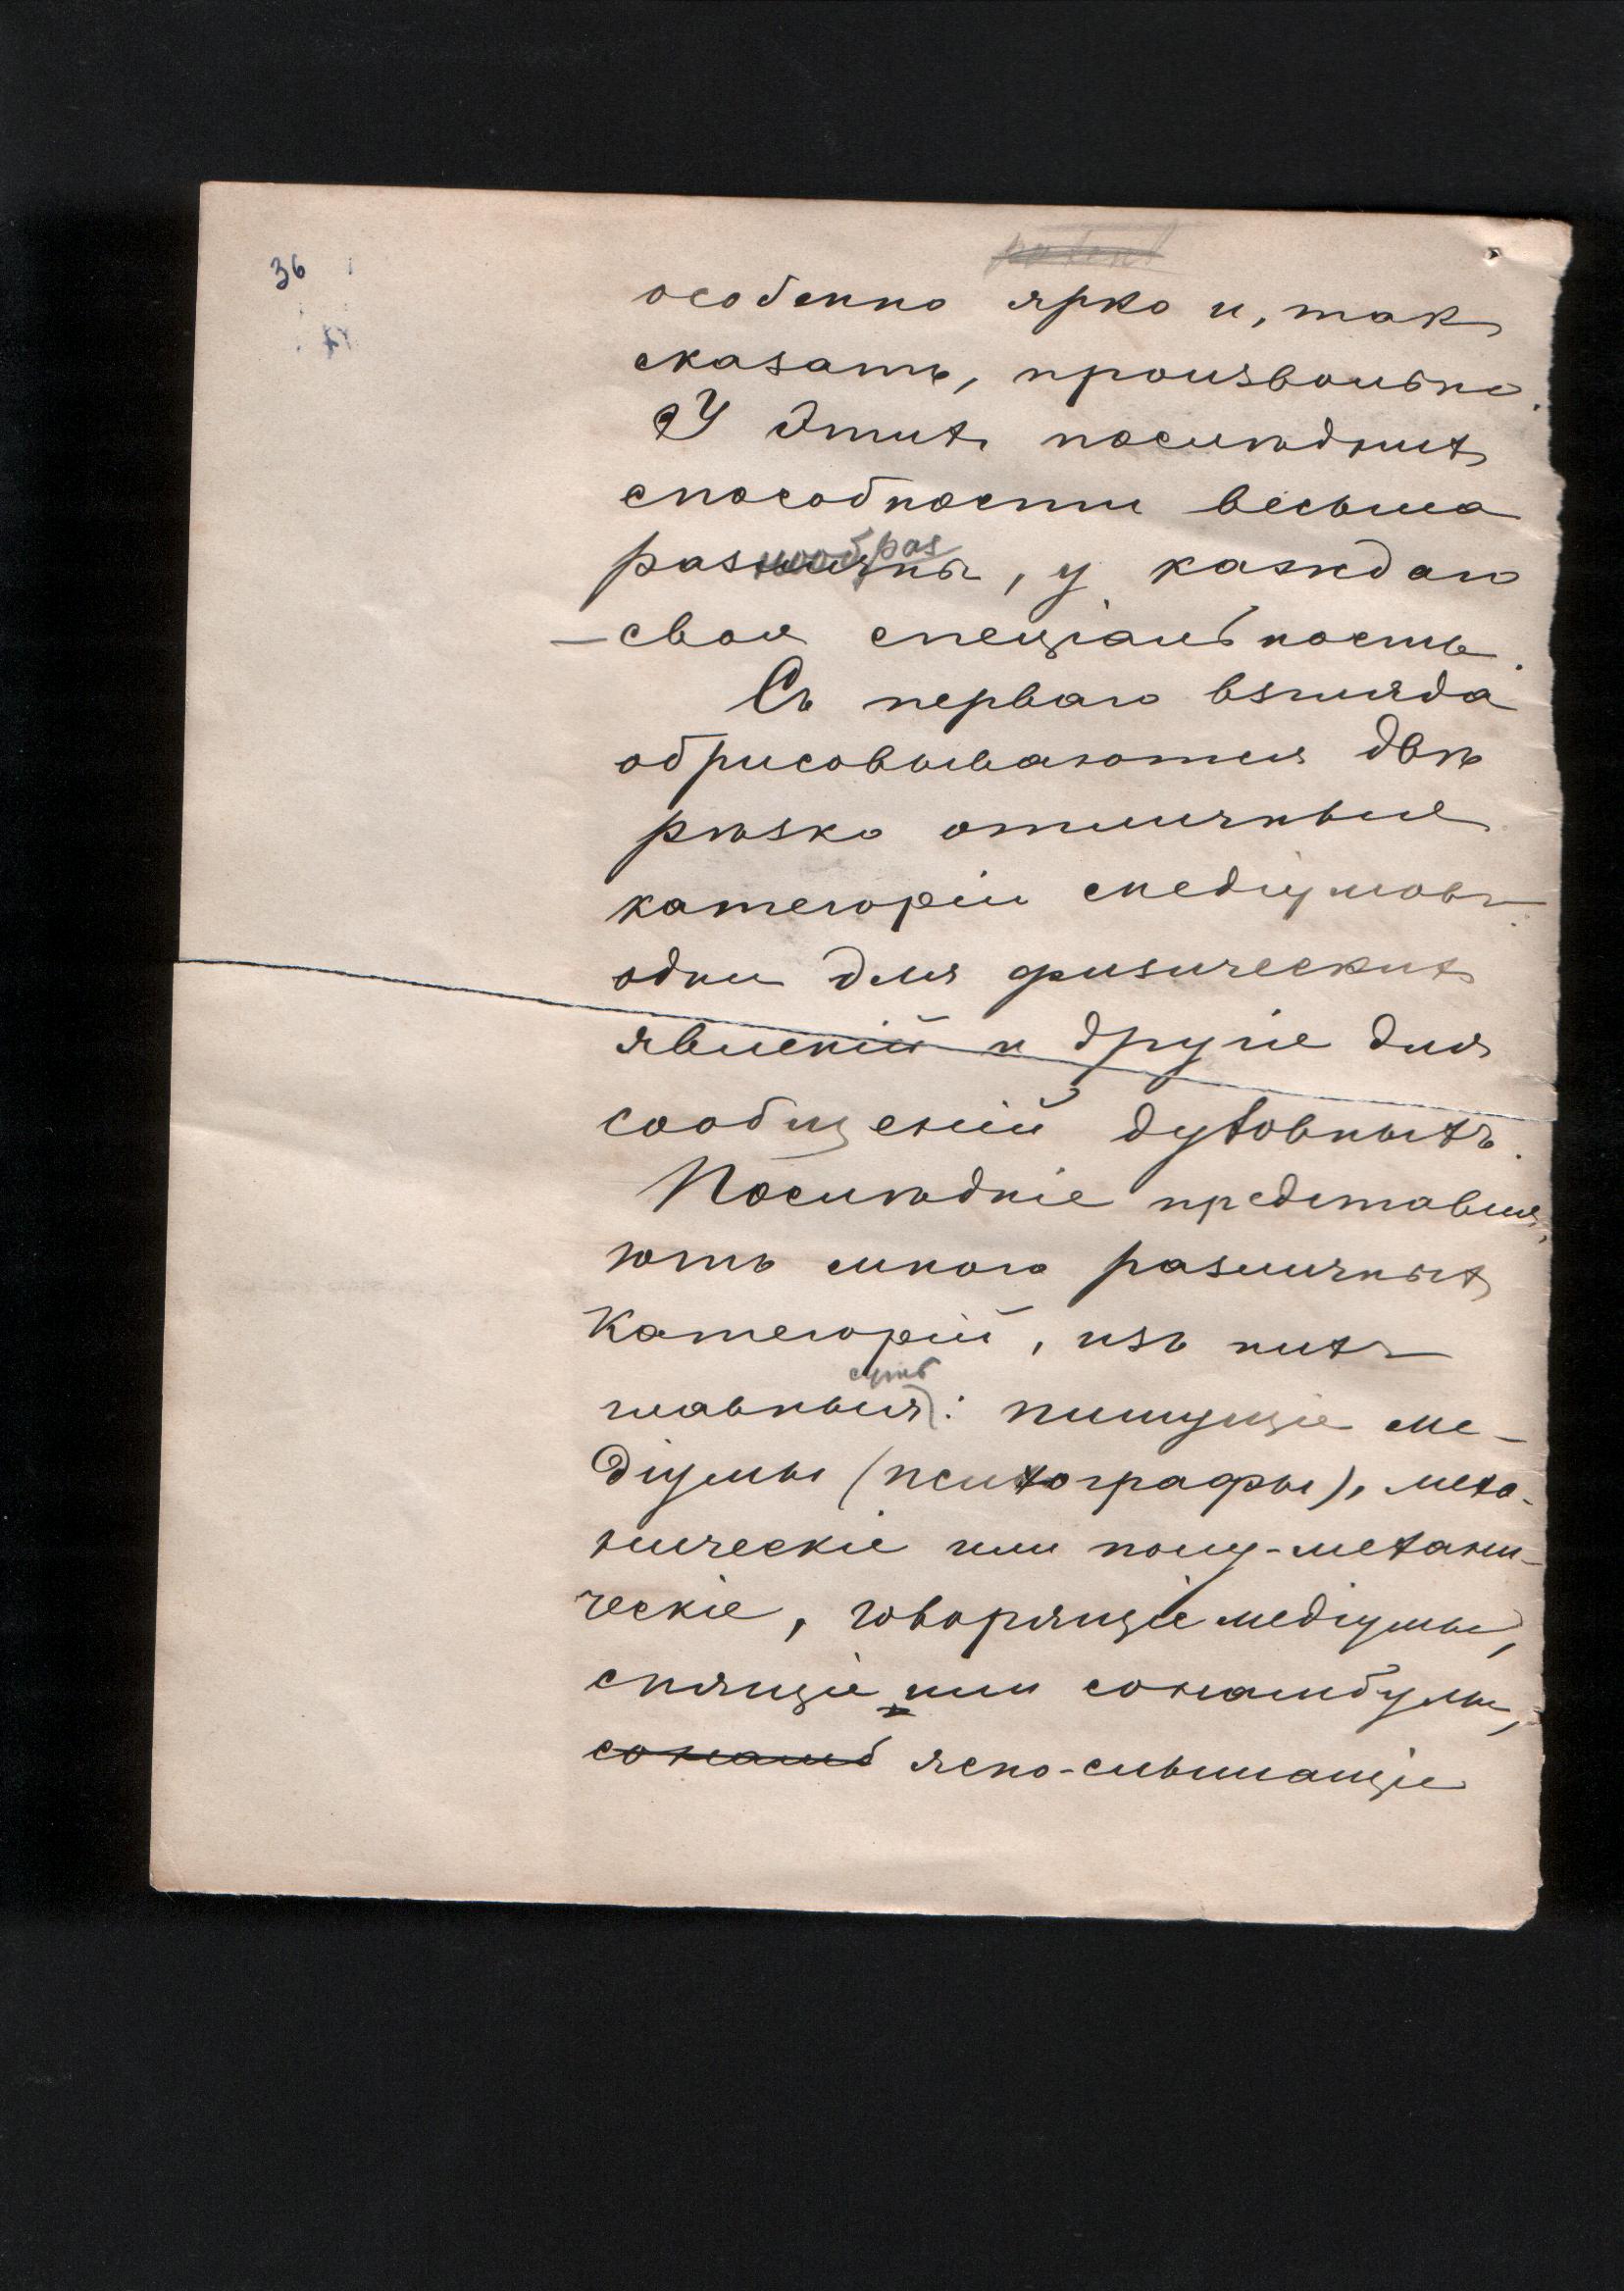 36
особенно ярко и, такъ
сказать, произвольно.
У этихъ послѣднихъ
способности весьма
разнообразны, у каждаго
— своя спеціальность.
Съ перваго взгляда
обрисовываются двѣ
рѣзко отличныя
категоріи медіумовъ
одни для физическихъ
явленій и другіе для
сообщеній духовныхъ.
Послѣдніе представля-
ютъ много различныхъ
категорій, изъ нихъ
суть
главныя: пишущіе ме-
діумы (психографы), меха-
ническіе или полу-механи-
ческіе, говорящіе медіумы,
спящіе или сонамбулы,
сонамб ясно-слышащіе